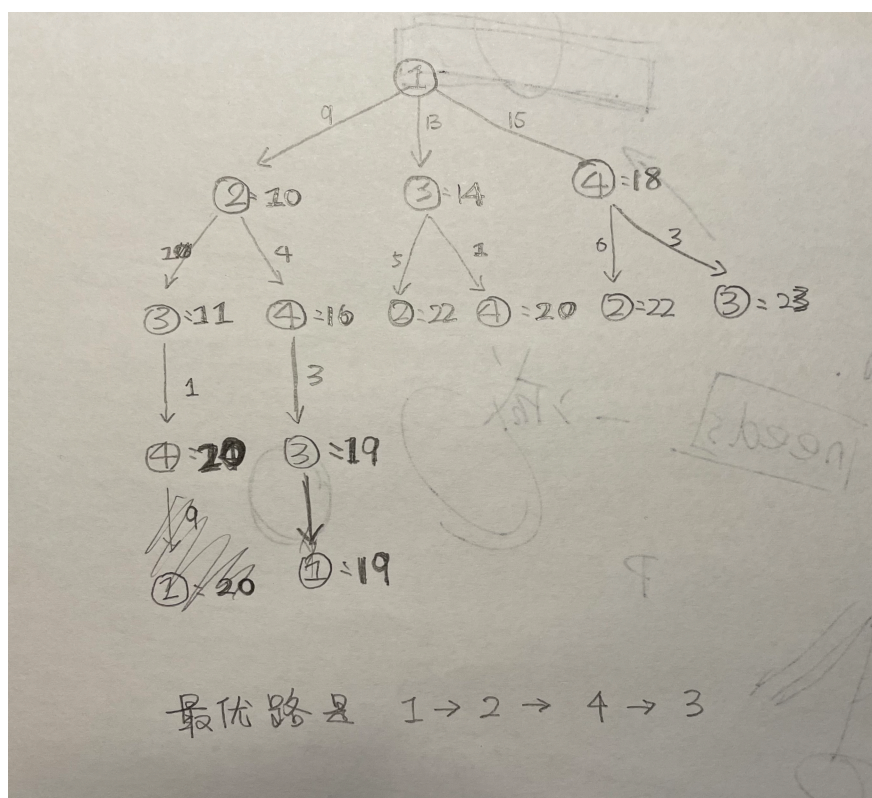 1
9 13 15
2=10 3=14 4=18
4 5 1 6 3
3=11 4=16 2=22 4=20 2=22 3=23
1 3
4=20 3=19
9
1=20 1=19
最优路是 1→2→4→3
needs
P